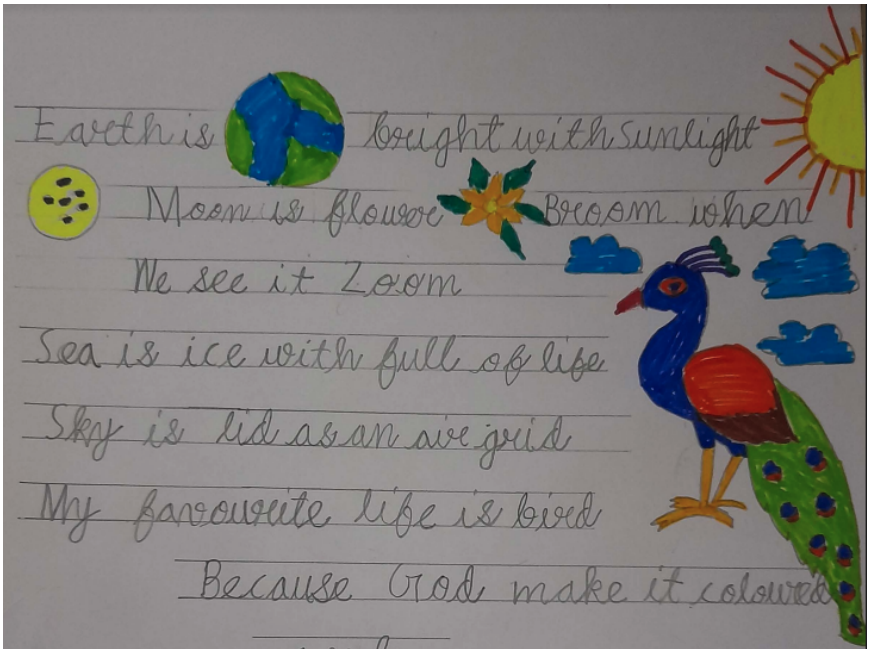 Earth is bright with sunlight
Moon is flower Broom when
We see it Zoom
Sea is ice with full of life
Sky is lid as an air grid
My favourite life is bird
Because God make it coloured